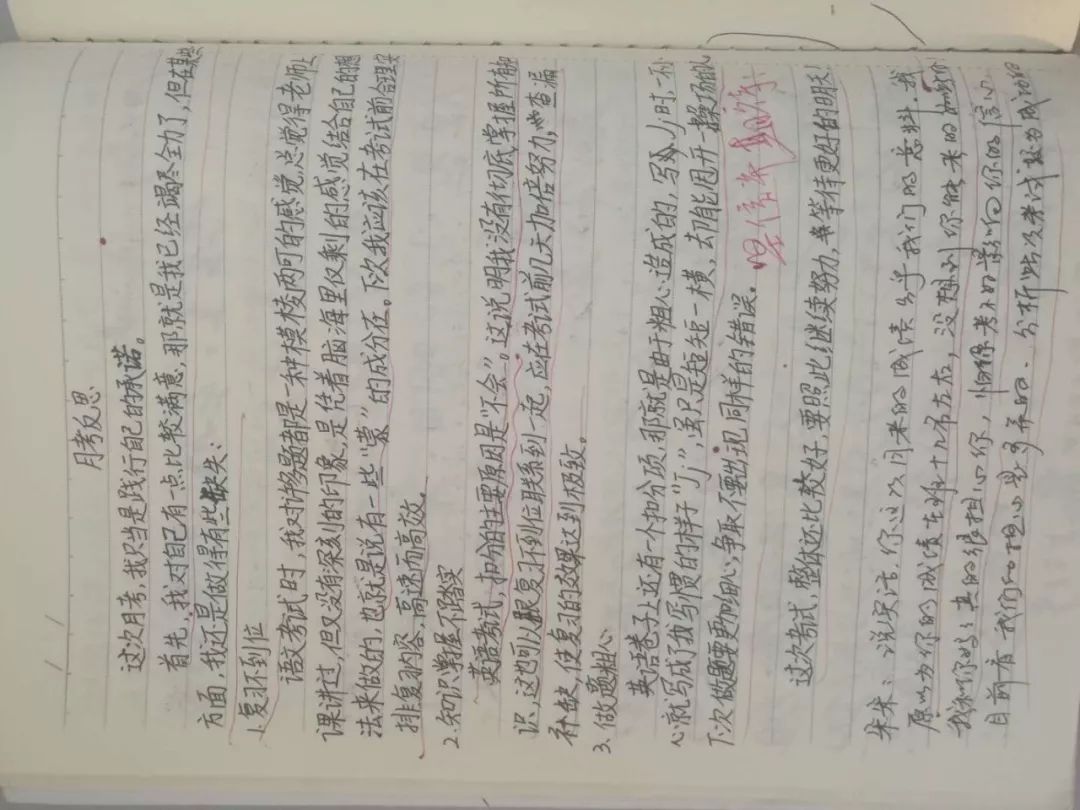 月考反思
这次月考,我只当是践行自己的承诺。
首先,我对自己有一点比较满意,那就是我已经竭尽全力了,但在某些
方面,我还是做得有些缺失:
1.复习不到位
语文考试时,我对许多题都是一种模棱两可的感觉,总觉得老师上
课讲过,但又没有深刻的印象,是凭着脑海里仅剩的感觉结合自己的想
法来做的,也就是说有一些“蒙”的成分在。下次我应该在考试前合理安
排复习内容,高速而高效。
2.知识掌握不踏实
英语考试,扣分的主要原因是“不会”。这说明我没有彻底掌握所有知
识,这也可以跟复习不到位联系到一起,应在考试前几天加倍努力,查漏
补缺,使复习的效果达到极致。
3.做题粗心
英语卷子上还有一个扣分项,那就是由于粗心造成的,写“J”时,不小
心就写成了我写惯的样子“j”,虽只是短短一横,却能用开一操场的人
下次做题要更加细心,争取不要出现同样的错误。
坚信苦尽甘来
这次考试,整体还比较好,要照此继续努力,等待更好的明天!
朱朱:说实话,你这次月考的成绩出乎我们的意料。我
原以为你的成绩在班十九名左右,没想到你能考的
我和你妈妈真的很担心你,怕你考不好影响你的信心
目前看我们的担心是多余的。分析此次考试较为成功的